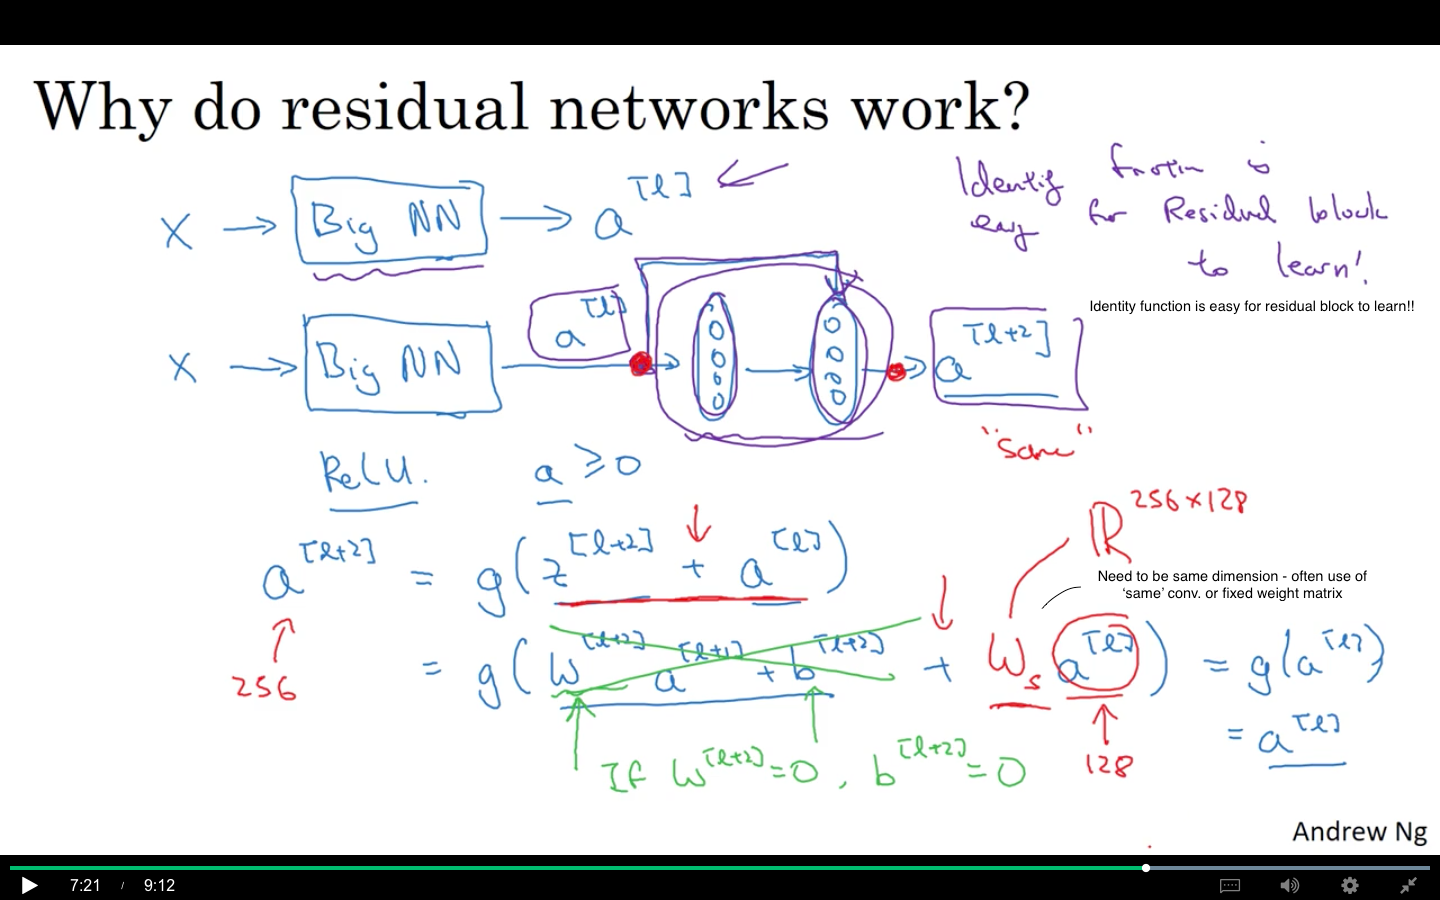 Why do residual networks work?
X → Big NN → a^[l] ←
Identity function is
easy for Residual block
to learn!
Identity function is easy for residual block to learn!!
X → Big NN a^[l] → → → a^[l+2]
"same"
ReLU. a ≥ 0
ℝ^256×128
a^[l+2] = g(z^[l+2] + a^[l])
Need to be same dimension - often use of
‘same’ conv. or fixed weight matrix
= g(W^[l+2] a^[l+1] + b^[l+2] + W_s a^[l]) = g(a^[l])
256
= a^[l]
If W^[l+2] = 0, b^[l+2] = 0
128
Andrew Ng
7:21 / 9:12